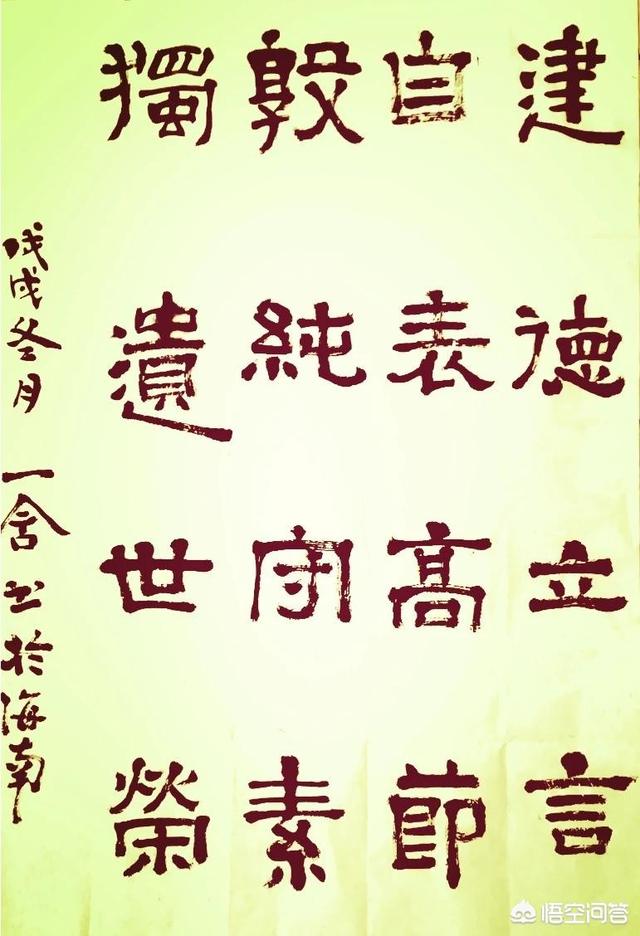 建德立言
自表高節
敦純守素
獨遺世榮
戊戌冬月 一舍书於海南
悟空问答